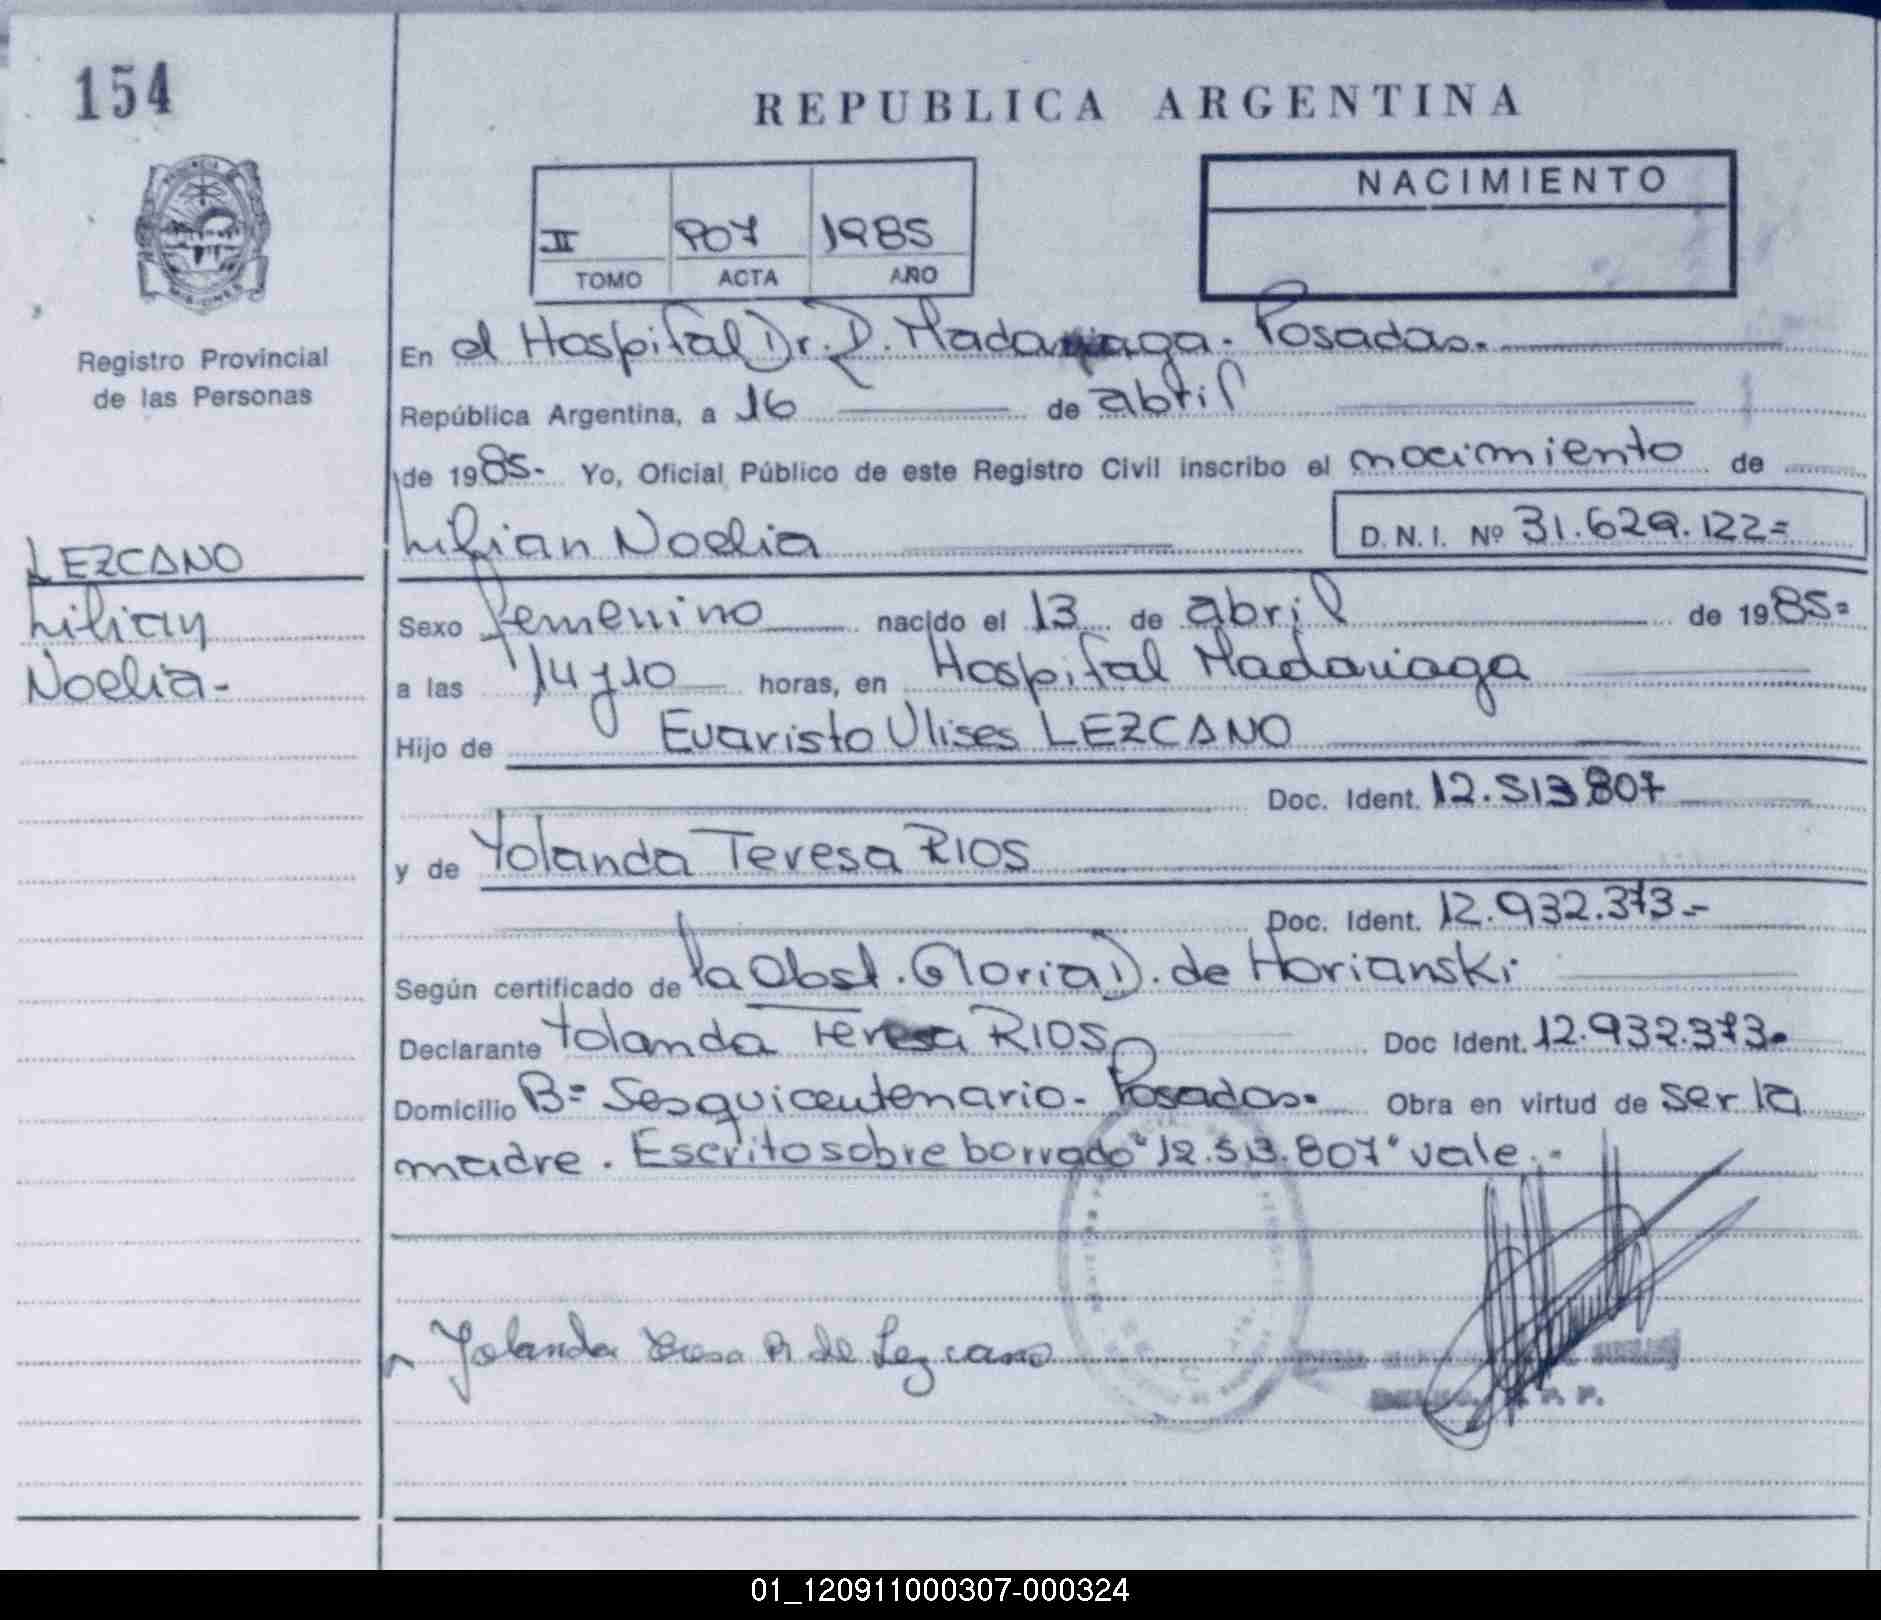 154
REPUBLICA ARGENTINA
NACIMIENTO
II 907 1985
TOMO ACTA AÑO
Registro Provincial
de las Personas
En el Hospital Dr. R. Madariaga. Posadas.
República Argentina, a 16 de abril
de 1985. Yo, Oficial Público de este Registro Civil inscribo el nacimiento de
Lilian Noelia D.N.I. Nº 31.629.122=
LEZCANO
Lilian
Noelia-
Sexo femenino nacido el 13 de abril de 1985=
a las 14 y 10 horas, en Hospital Madariaga
Hijo de Evaristo Ulises LEZCANO
Doc. Ident. 12.513.807
y de Yolanda Teresa RIOS
Doc. Ident. 12.932.373.-
Según certificado de la Obst. Gloria D. de Horianski
Declarante Yolanda Teresa RIOS Doc Ident. 12.932.373.
Domicilio Bº Sesquicentenario- Posadas. Obra en virtud de ser la
madre. Escrito sobre borrado "12.513.807" vale.-
Yolanda Teresa R de Lezcano
01_120911000307-000324